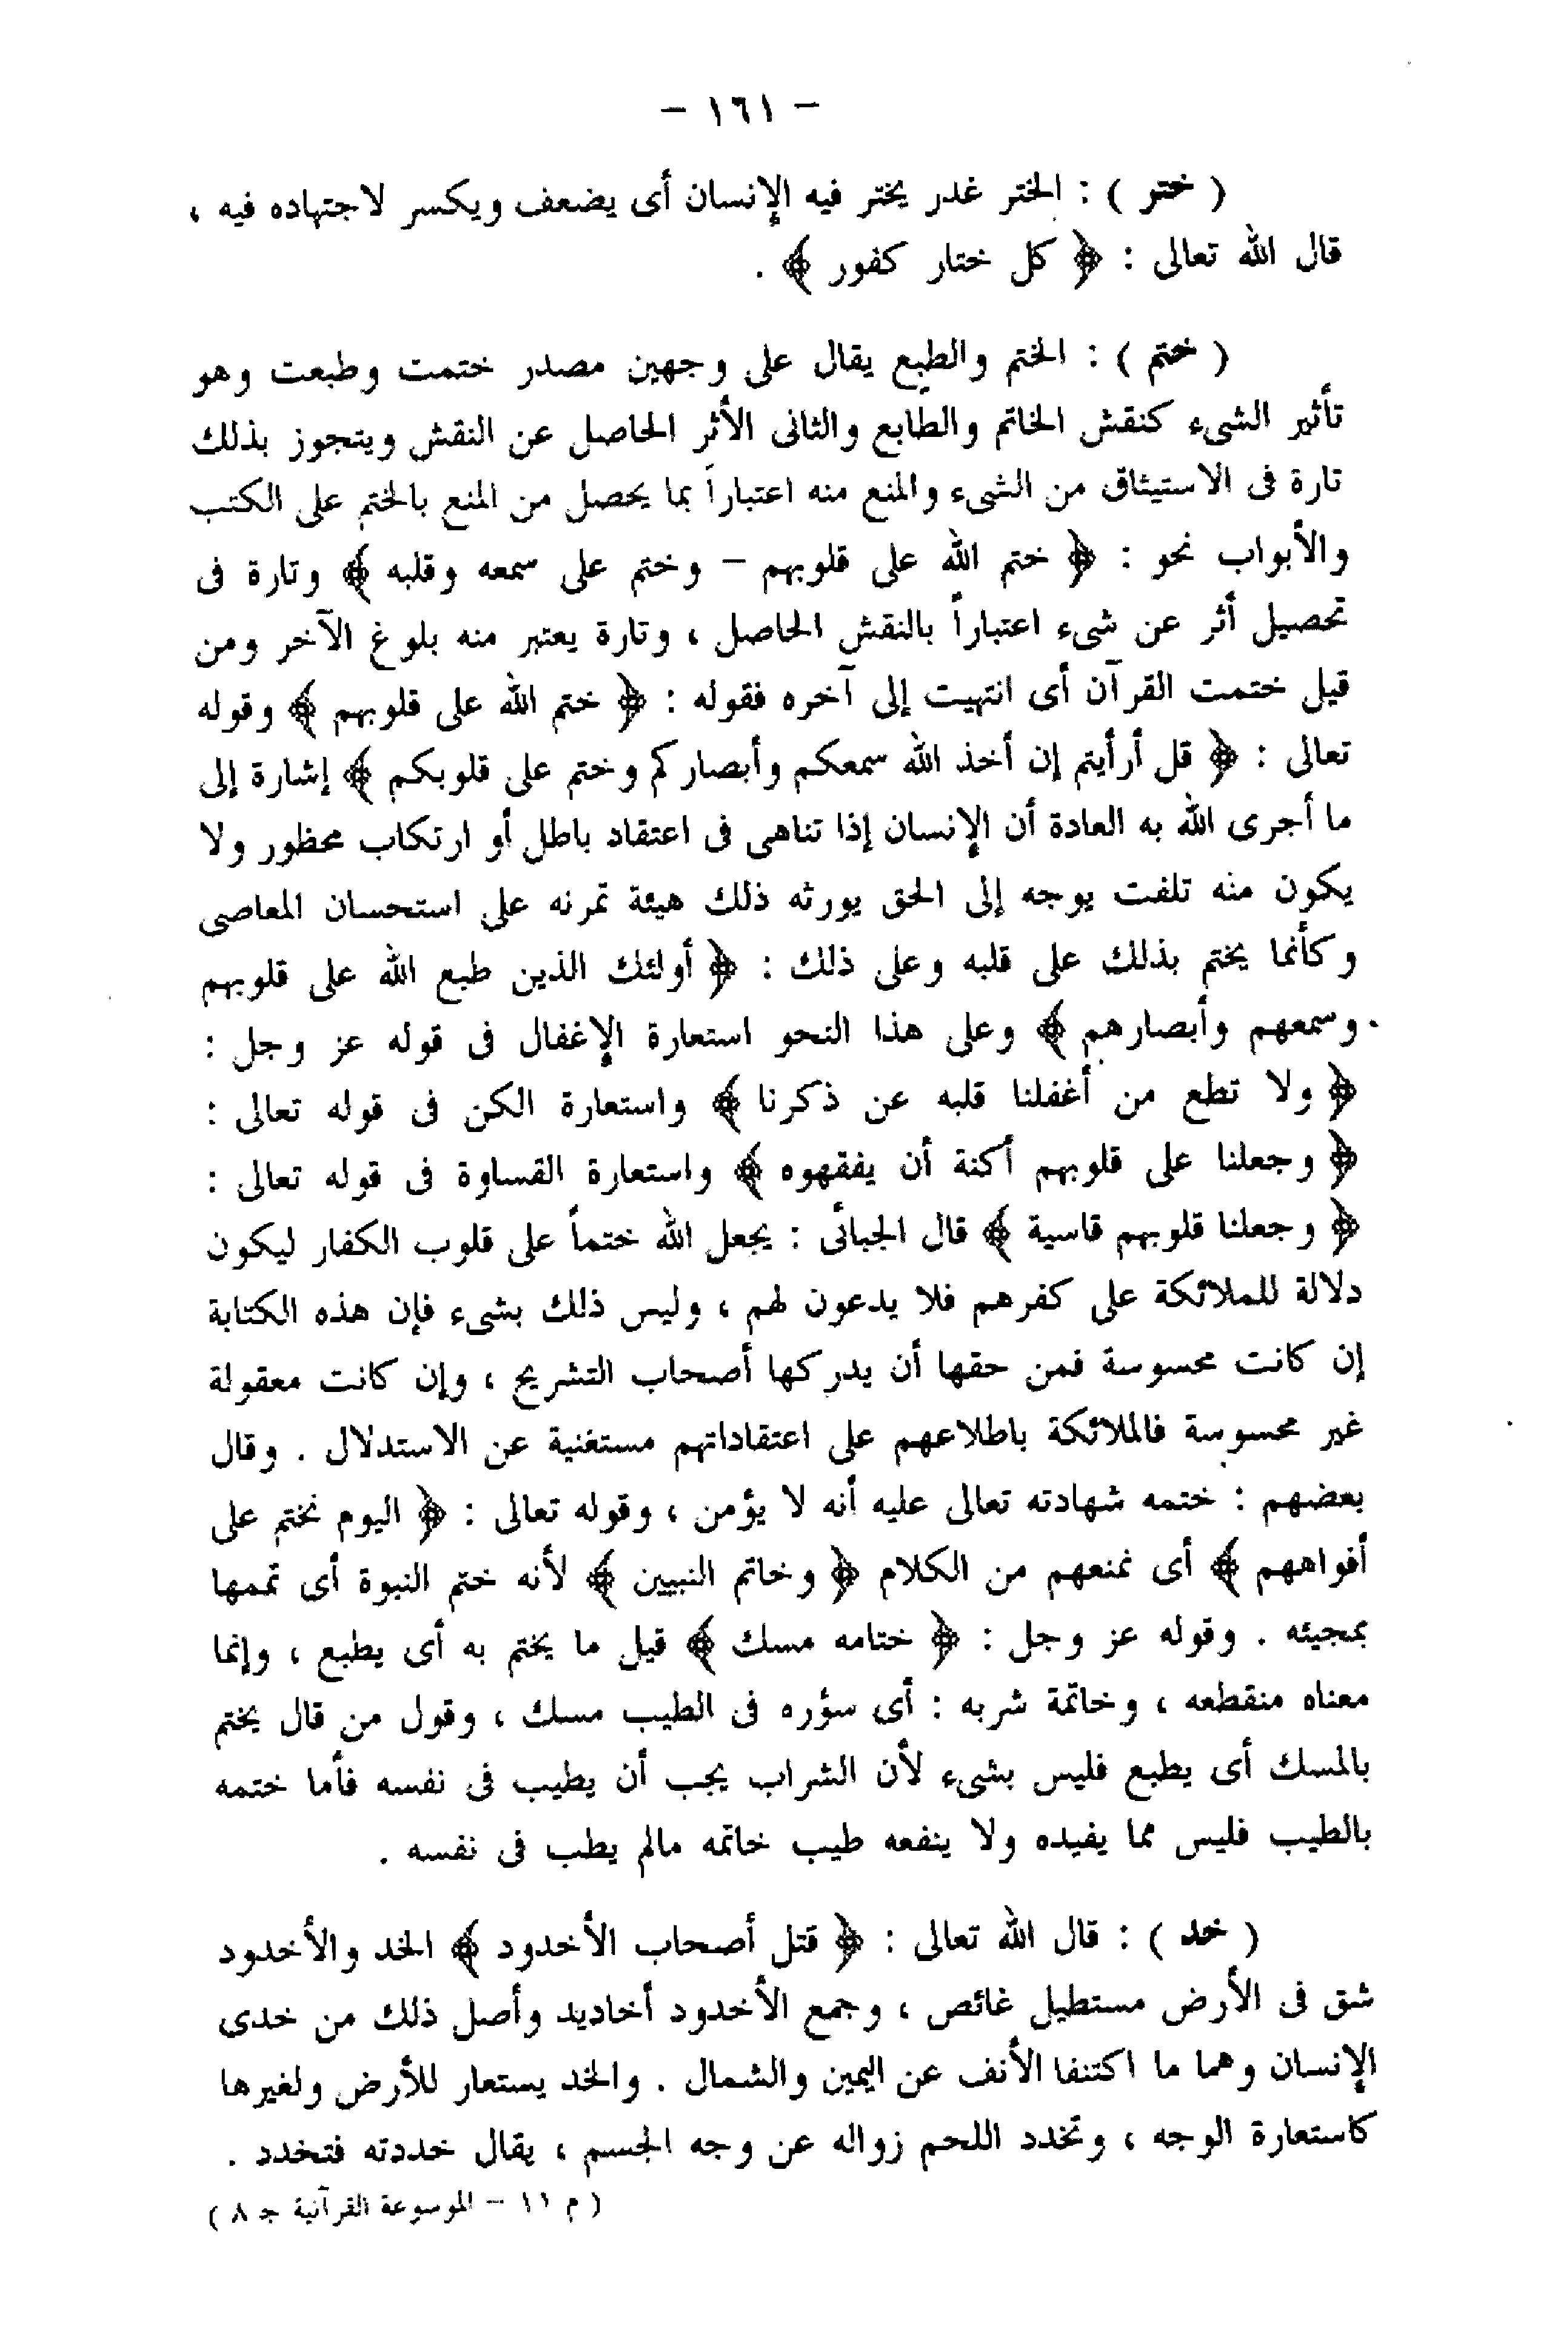 - ١٦١ -
( ختر ) : الختر غدر يختر فيه الإنسان أى يضعف ويكسر لاجتهاده فيه ،
قال الله تعالى : ﴿ كل ختار كفور ﴾ .
( ختم ) : الختم والطبع يقال على وجهين مصدر ختمت وطبعت وهو
تأثير الشىء كنقش الخاتم والطابع والثانى الأثر الحاصل عن النقش ويتجوز بذلك
تارة فى الاستيثاق من الشىء والمنع منه اعتباراً بما يحصل من المنع بالختم على الكتب
والأبواب نحو : ﴿ ختم الله على قلوبهم - وختم على سمعه وقلبه ﴾ وتارة فى
تحصيل أثر عن شىء اعتباراً بالنقش الحاصل ، وتارة يعتبر منه بلوغ الآخر ومن
قيل ختمت القرآن أى انتهيت إلى آخره فقوله : ﴿ ختم الله على قلوبهم ﴾ وقوله
تعالى : ﴿ قل أرأيتم إن أخذ الله سمعكم وأبصاركم وختم على قلوبكم ﴾ إشارة إلى
ما أجرى الله به العادة أن الإنسان إذا تناهى فى اعتقاد باطل أو ارتكاب محظور ولا
يكون منه تلفت يوجه إلى الحق يورثه ذلك هيئة تمرنه على استحسان المعاصى
وكأنما يختم بذلك على قلبه وعلى ذلك : ﴿ أولئك الذين طبع الله على قلوبهم
وسمعهم وأبصارهم ﴾ وعلى هذا النحو استعارة الإغفال فى قوله عز وجل :
﴿ ولا تطع من أغفلنا قلبه عن ذكرنا ﴾ واستعارة الكن فى قوله تعالى :
﴿ وجعلنا على قلوبهم أكنة أن يفقهوه ﴾ واستعارة القساوة فى قوله تعالى :
﴿ وجعلنا قلوبهم قاسية ﴾ قال الجبائى : يجعل الله ختماً على قلوب الكفار ليكون
دلالة للملائكة على كفرهم فلا يدعون لهم ، وليس ذلك بشىء فإن هذه الكتابة
إن كانت محسوسة فمن حقها أن يدركها أصحاب التشريح ، وإن كانت معقولة
غير محسوسة فالملائكة باطلاعهم على اعتقاداتهم مستغنية عن الاستدلال . وقال
بعضهم : ختمه شهادته تعالى عليه أنه لا يؤمن ، وقوله تعالى : ﴿ اليوم نختم على
أفواههم ﴾ أى نمنعهم من الكلام ﴿ وخاتم النبيين ﴾ لأنه ختم النبوة أى تممها
بمجيئه . وقوله عز وجل : ﴿ ختامه مسك ﴾ قيل ما يختم به أى يطبع ، وإنما
معناه منقطعه ، وخاتمة شربه : أى سؤره فى الطيب مسك ، وقول من قال يختم
بالمسك أى يطبع فليس بشىء لأن الشراب يجب أن يطيب فى نفسه فأما ختمه
بالطيب فليس مما يفيده ولا ينفعه طيب خاتمه مالم يطب فى نفسه .
( خد ) : قال الله تعالى : ﴿ قتل أصحاب الأخدود ﴾ الخد والأخدود
شق فى الأرض مستطيل غائص ، وجمع الأخدود أخاديد وأصل ذلك من خدى
الإنسان وهما ما اكتنفا الأنف عن اليمين والشمال . والخد يستعار للأرض ولغيرها
كاستعارة الوجه ، وتخدد اللحم زواله عن وجه الجسم ، يقال خددته فتخدد .
( م ١١ - الموسوعة القرآنية جـ ٨ )